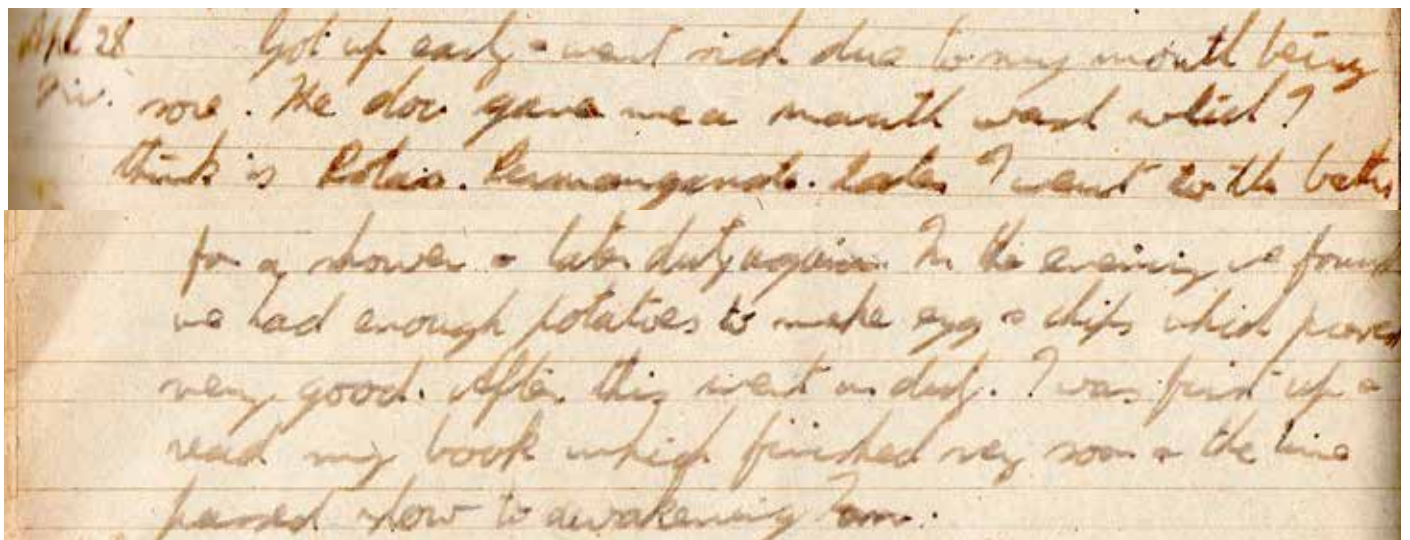 Apl 28 Got up early & went sick due to my mouth being
sore. The doc gave me a mouth wash which I
think is Potass. Permanganate. Later I went to the baths
for a shower & later duty again. In the evening we found
we had enough potatoes to make egg & chips which proved
very good. After this went on duty. I was first up &
read my book which finished very soon & the time
passed slow to awakening